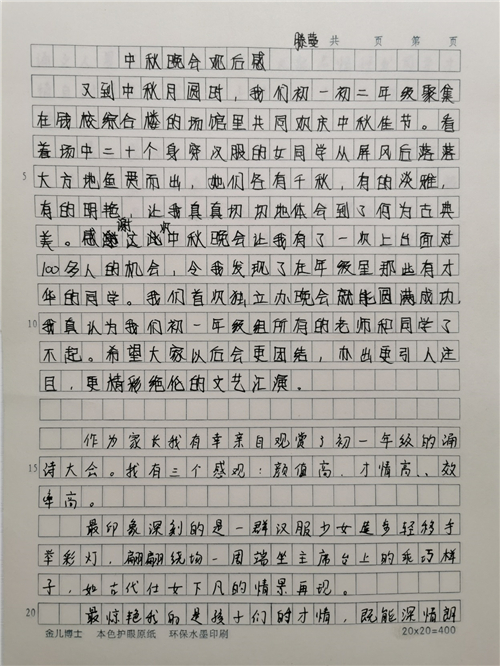 滕莹 共 页 第 页
中秋晚会观后感
又到中秋月圆时,我们初一初二年级聚集
在钱校综合楼的场馆里共同欢庆中秋佳节。看
着场中二十个身穿汉服的女同学从屏风后落落
5 大方地鱼贯而出,她们各有千秋,有的淡雅,
有的明艳,让我真真切切地体会到了何为古典
美。感谢这次中秋晚会让我有了一次上台面对
100多人的机会,令我发现了在年级里那些有才
华的同学。我们首次独立办晚会就能圆满成功,
10 我真认为我们初一年级组所有的老师和同学了
不起。希望大家以后会更团结,办出更引人注
目,更精彩绝伦的文艺汇演。
作为家长我有幸亲自观赏了初一年级的诵
15 诗大会。我有三个感观:颜值高、才情高、效
率高。
最印象深刻的是一群汉服少女莲步轻移手
举彩灯,翩翩绕场一周端坐主席台上的乖巧样
子,如古代仕女下凡的情景再现。
20 最惊艳我的是孩子们的才情,既能深情朗
金儿博士 本色护眼原纸 环保水墨印刷 20×20=400